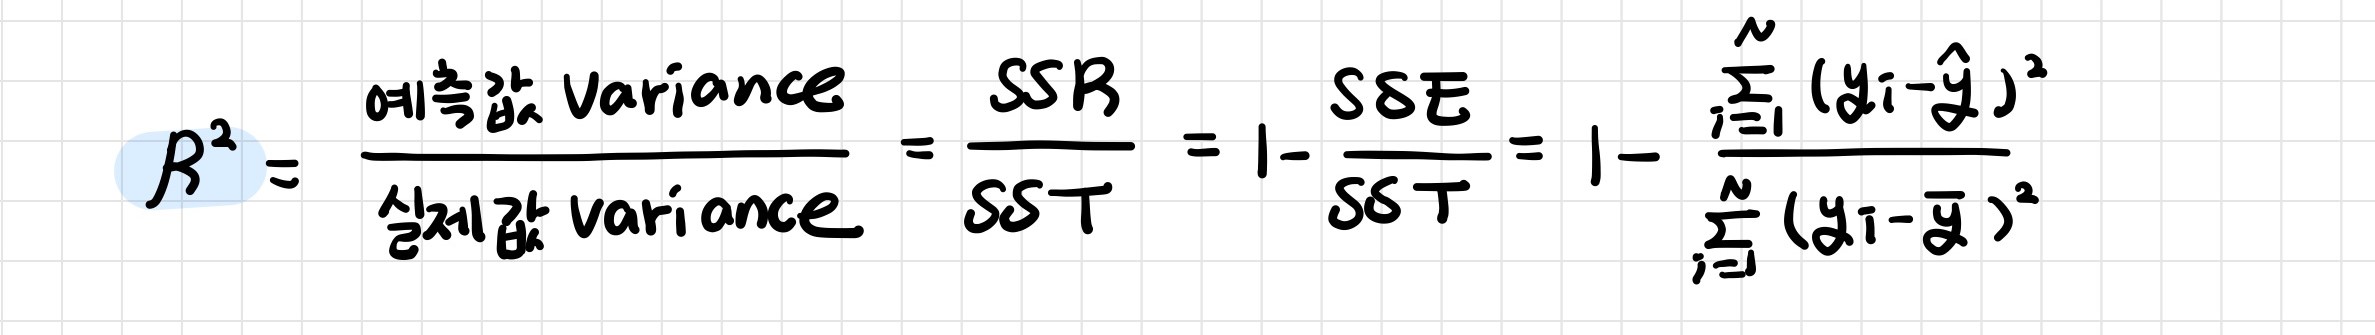 R² = 예측값 variance / 실제값 variance = SSR / SST = 1 - SSE / SST = 1 - \sum_{i=1}^{N} (yi - \hat{y})² / \sum_{i=1}^{N} (yi - \bar{y})²